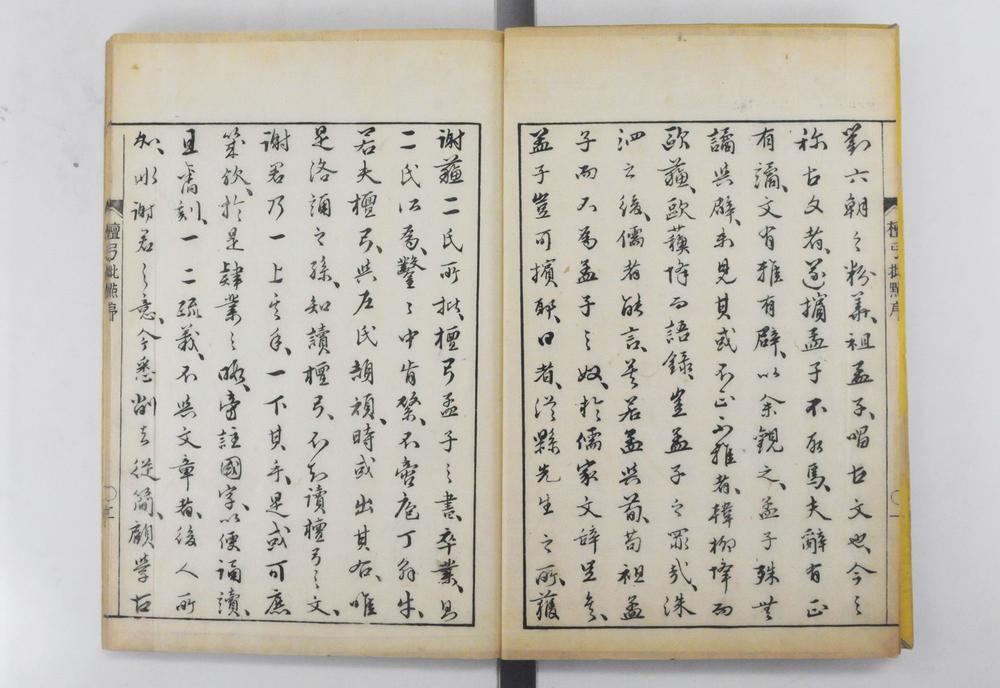 劉六朝之粉華、祖孟子、唱古文也、今之
称古文者、遂擯孟子不取焉、夫辭有正
有譎、文有雅有辟、以余觀之、孟子殊無
譎與辟、未見其或不正不雅者、韓柳降而
歐蘓、歐蘓降而語録、豈孟子之罪哉、洙
泗之後、儒者能言、莫若孟與荀、荀祖孟
子而不為孟子之奴、於儒家文辭足矣、
孟子豈可擯耶、日者、從縣先生之所、獲
謝蘓二氏所批、檀弓孟子之書、卒業、則
二氏以為、鑿之中肯綮、不啻庖丁解牛、
若夫檀弓、與左氏頡頏、時或出其右、唯
是洛誦之孫、知讀檀弓、不知讀檀弓之文、
謝君乃一上其手、一下其手、是或可庶
築欤、於是肄業之暇、旁註國字、以便誦讀、
且舊刻、一二疏義、不與文章者、後人所
為、非謝君之意、今悉削去從簡、顧學古
檀弓批點序
檀弓批點序